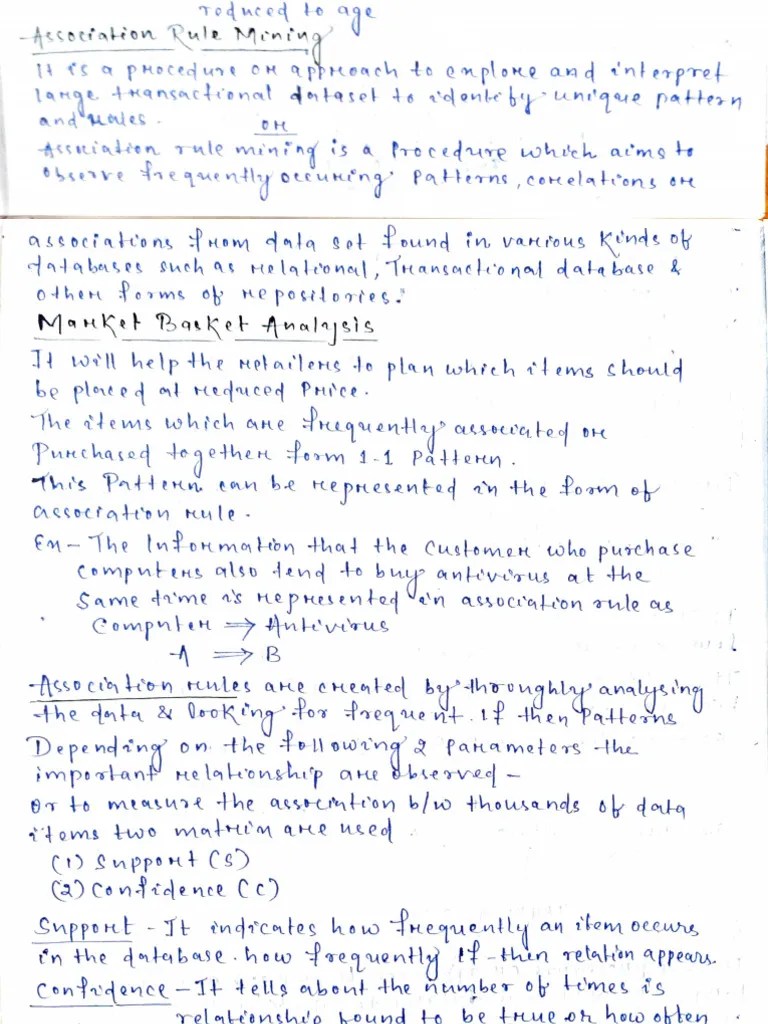 reduced to age
Association Rule Mining
It is a procedure or approach to explore and interpret
large transactional dataset to identify unique pattern
and rules.
OR
Association rule mining is a Procedure which aims to
observe frequently occuring Patterns, corelations or
associations from data set found in various kinds of
databases such as relational, Transactional database &
other forms of repositories.
Market Basket Analysis
It will help the retailers to plan which items should
be placed at reduced Price.
The items which are frequently associated or
Purchased together form 1-1 Pattern.
This Pattern can be represented in the form of
association rule.
Ex- The Information that the customer who purchase
computers also tend to buy antivirus at the
same time is represented in association rule as
Computer ⇒ Antivirus
A ⇒ B
Association rules are created by thoroughly analysing
the data & looking for frequent. If then Patterns
Depending on the following 2 parameters the
important relationship are observed -
Or to measure the association b/w thousands of data
items two matrix are used
(1) Support (S)
(2) Confidence (C)
Support - It indicates how frequently an item occurs
in the database. how frequently If-then relation appears.
Confidence - It tells about the number of times is
relationship found to be true or how often